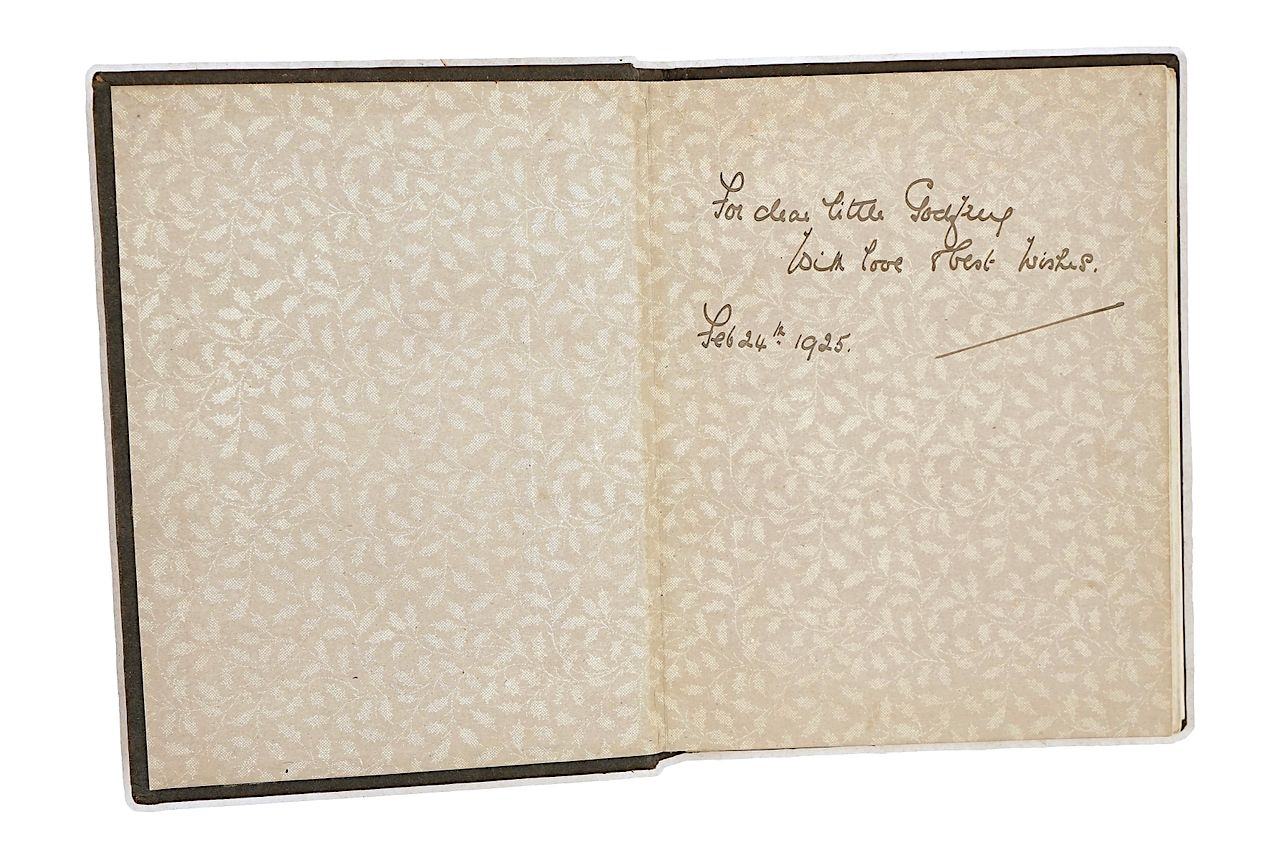 For dear little Godfrey
With love & best Wishes.
Feb 24th 1925.